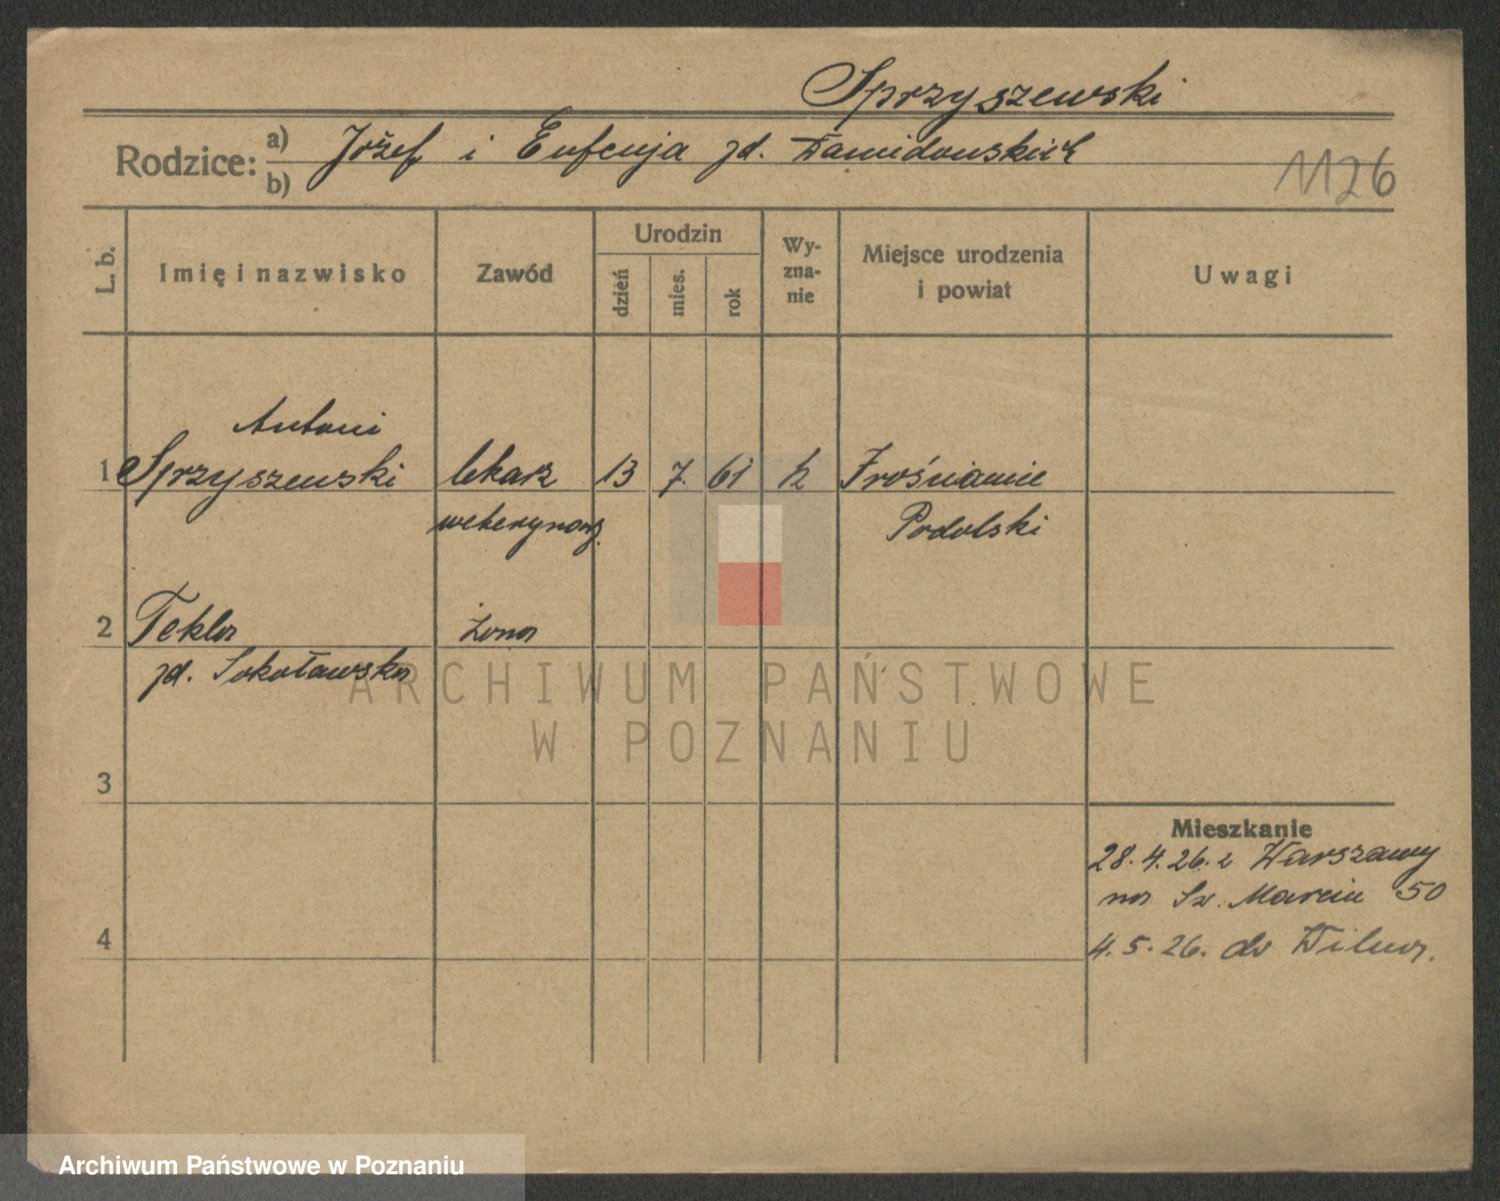 Sprzyszewski
Rodzice: a) Józef i Eufenja zd.
b)
1126
L. b.
Imię i nazwisko
Zawód
Urodzin
dzień
mies.
rok
Wy-
zna-
nie
Miejsce urodzenia
i powiat
Uwagi
Antoni
1 Sprzyszewski lekarz 13 7. 61
weterynarz. Podolski
2 Tekla żona
zd. Sokoławska
ARCHIWUM PAŃSTWOWE
W POZNANIU
3
Mieszkanie
28.4.26. z Warszawy
na Św. Marcin 50
4
4.5.26. do Wilna.
Archiwum Państwowe w Poznaniu